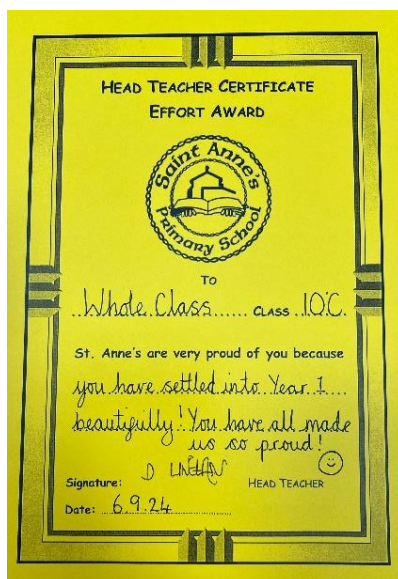 HEAD TEACHER CERTIFICATE
EFFORT AWARD
Saint Anne's
Primary School
TO
Whole Class CLASS 1O'C
St. Anne's are very proud of you because
you have settled into Year 1
beautifully! You have all made
us so proud!
Signature: D
HEAD TEACHER
Date: 6.9.24